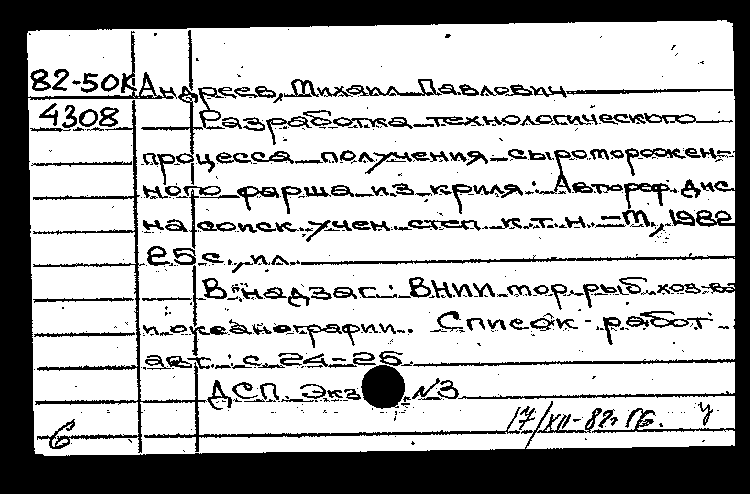 82-50К Андреев, Михаил Павлович
4308 Разработка технологического
процесса получения сыроморожен-
ного фарша из криля: Автореф. дис
на соиск. учен. степ. к.т.н. – М., 1982
25 с., ил.
В надзаг.: ВНИИ мор. рыб. хоз-ва
и океанографии. Список работ
авт.: с. 24-25.
ДСП. Экз. №3
6 17/XII-82г. ГБ.